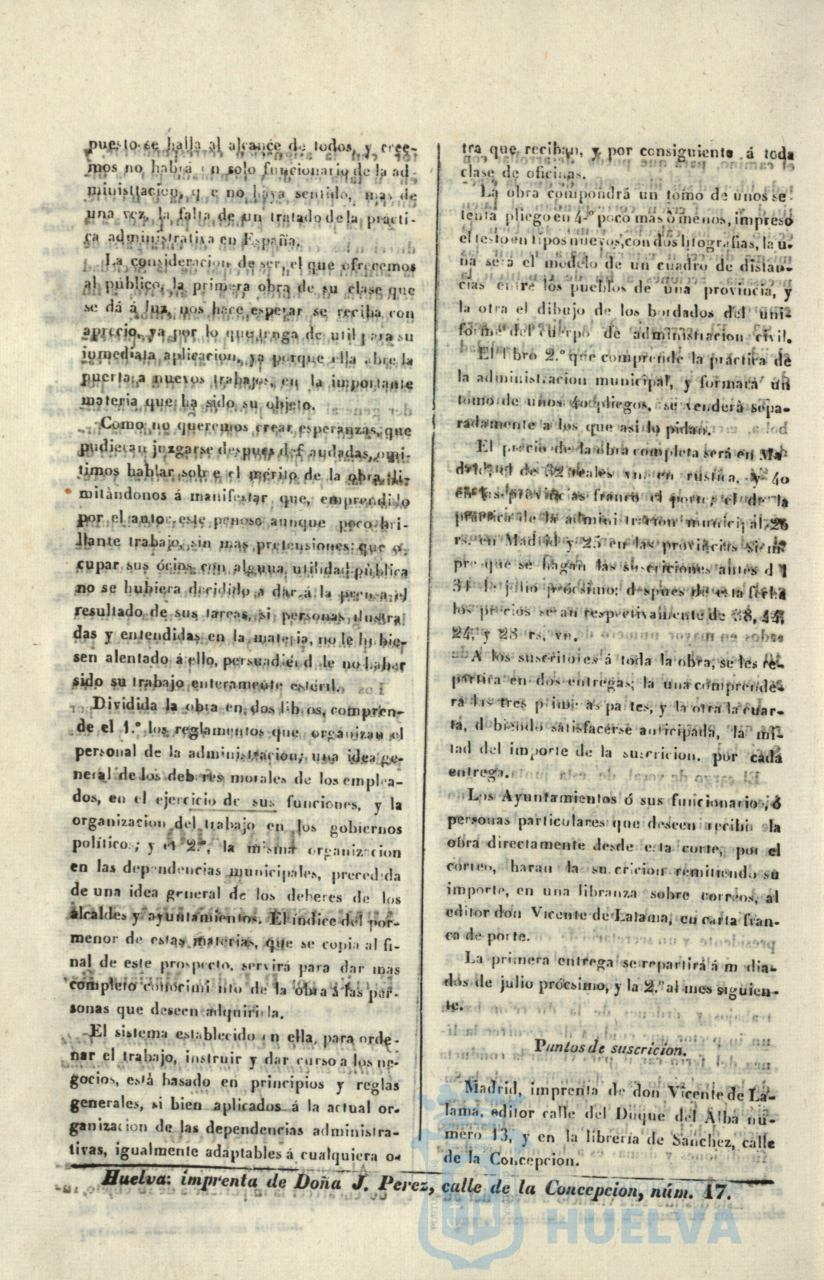 puesto se halla al alcance de todos, y cree-
mos no habrá un solo funcionario de la ad-
ministracion, q e no haya sentido, mas de
una vez, la falta de un tratado de la practi-
ca administrativa en España.
La consideracion de ser, el que ofrecemos
al público, la primera obra de su clase que
se dá á luz, nos hace esperar se reciba con
aprecio, ya por lo que tenga de util para su
inmediata aplicacion, ya porque ella abre la
puerta a nuevos trabajos, en la importante
materia que ha sido su objeto.
Como no queremos crear esperanzas, que
pudieran juzgarse despues defraudadas, omi-
timos hablar sobre el mérito de la obra, li-
mitándonos á manifestar que, emprendido
por el autor este penoso aunque poco bri-
llante trabajo, sin mas pretensiones que o-
cupar sus ócios con alguna utilidad pública
no se hubiera decidido a dar á la prensa el
resultado de sus tareas, si personas ilustra
das y entendidas en la materia, no le hubie-
sen alentado á ello, persuadiéndole no haber
sido su trabajo enteramente estéril.
Dividida la obra en dos libros, compren-
de el 1.º los reglamentos que organizan el
personal de la administracion; una idea ge-
neral de los deberes morales de los emplea-
dos, en el ejercicio de sus funciones, y la
organizacion del trabajo en los gobiernos
políticos; y el 2.º, la misma organizacion
en las dependencias municipales, precedida
de una idea general de los deberes de los
alcaldes y ayuntamientos. El índice del por-
menor de estas materias, que se copia al fi-
nal de este prospecto, servirá para dar mas
completo conocimi nto de la obra á las per-
sonas que deseen adquirirla.
El sistema establecido en ella, para orde-
nar el trabajo, instruir y dar curso a los ne-
gocios, está basado en principios y reglas
generales, si bien aplicados á la actual or-
ganizacion de las dependencias administra-
tivas, igualmente adaptables á cualquiera o-
tra que reciban, y por consiguiente á toda
clase de oficinas.
La obra compondrá un tomo de unos se-
tenta pliego en 4.º poco mas ó menos, impreso
el testo en tipos nuevos, con dos litografias, la u-
na será el modelo de un cuadro de distan-
cias entre los pueblos de una provincia, y
la otra el dibujo de los bordados del uni-
forme del cuerpo de administracion civil.
El libro 2.º que comprende la práctica de
la administracion municipal, y formará un
tomo de unos 40 pliegos, se venderá sepa-
radamente a los que asi lo pidan.
El precio de la obra completa será en Ma-
drid el de 32 reales vn. en rustica, y 40
en las provincias franco el porte; el de la
práctica de la administracion municipal, 20
rs. en Madrid y 25 en las provincias siem-
pre que se hagan las suscriciones antes d l
31 de julio prócsimo; despues de esta fecha
los precios seran respectivamente de 38, 44,
24, y 28 rs. vn.
A los suscritores á toda la obra, se les re-
partira en dos entregas; la una comprende-
rá las tres primeras partes, y la otra la cuar-
ta, d biendo satisfacerse anticipada, la mi-
tad del importe de la suscricion, por cada
entrega.
Los Ayuntamientos ó sus funcionarios, ó
personas particulares que deseen recibir la
obra directamente desde esta corte, por el
correo, haran la suscricion remitiendo su
importe, en una libranza sobre correos, al
editor don Vicente de Lalama, en carta fran-
ca de porte.
La primera entrega se repartirá á m dia-
dos de julio prócsimo, y la 2.ª al mes siguien-
te.
Puntos de suscricion.
Madrid, imprenta de don Vicente de La-
lama, editor calle del Duque del Alba nú-
mero 13, y en la librería de Sanchez, calle
de la Concepcion.
Huelva: imprenta de Doña J. Perez, calle de la Concepcion, núm. 17.
HUELVA